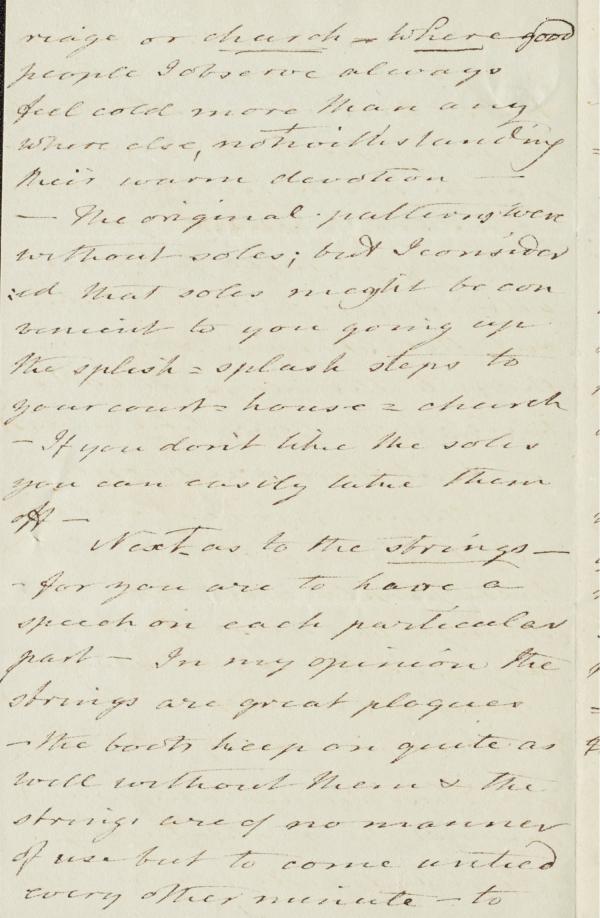 riage or church - where good
people I observe always
feel cold more than any
where else, notwithstanding
their warm devotion —
— The original patterns were
without soles; but I consider
:ed that soles might be con
venient to you going up
the splish = splash steps to
your court = house = church
- If you don't like the soles
you can easily take them
off —
Next as to the strings —
- for you are to have a
speech on each particular
part — In my opinion the
strings are great plagues
- the boots keep on quite as
well without them & the
strings are of no manner
of use but to come untied
every other minute — to